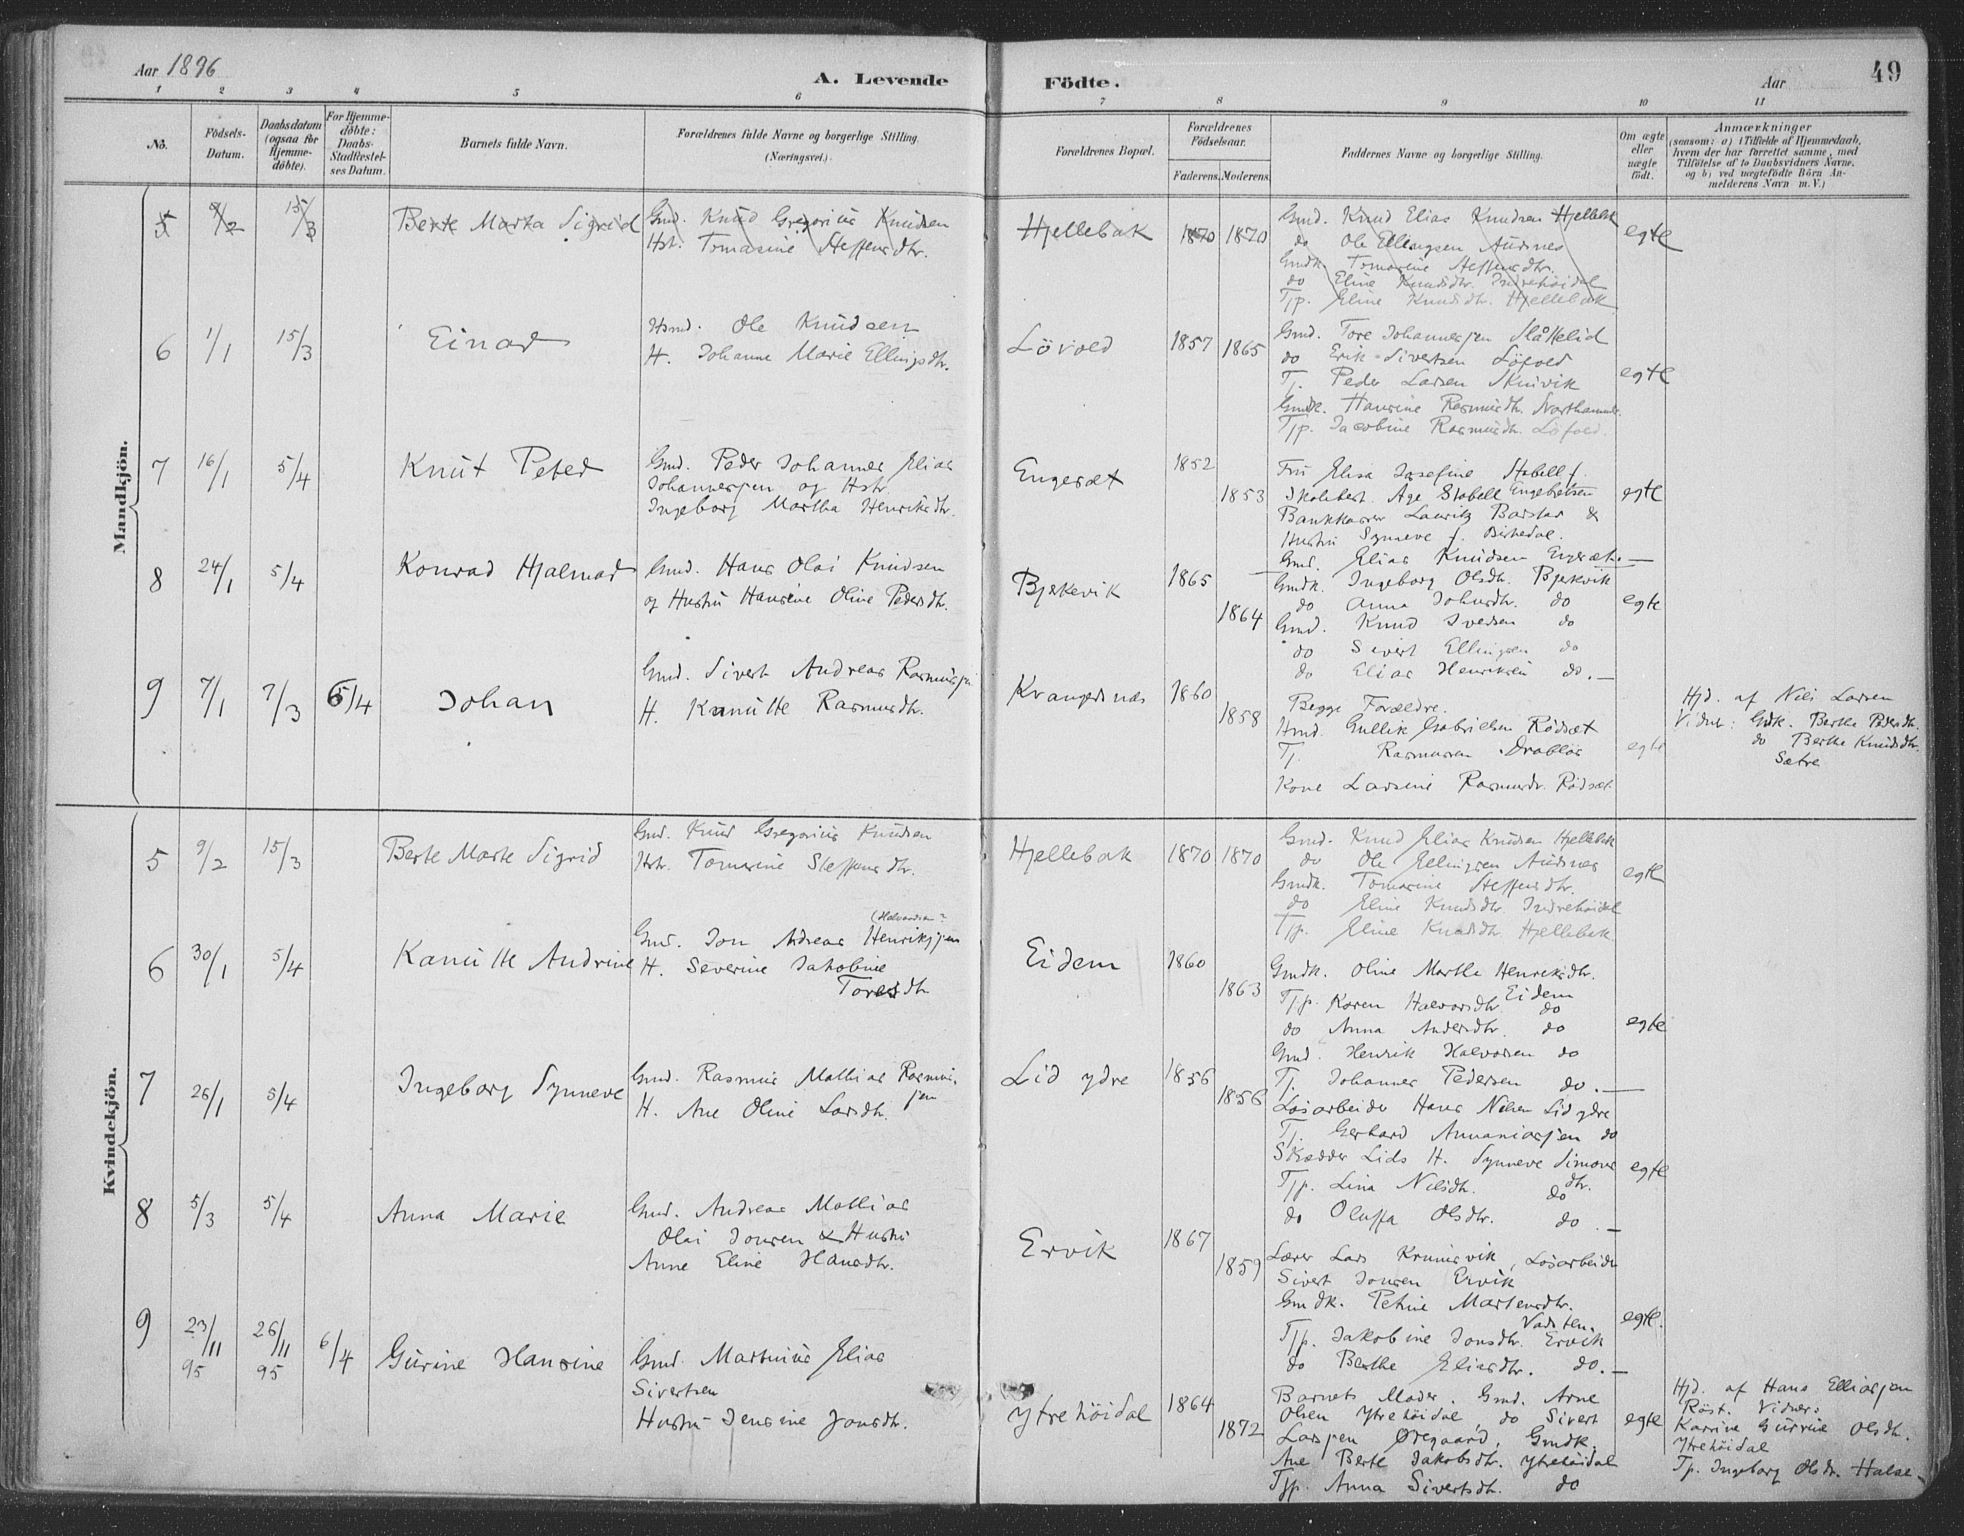 Aar 1896
A. Levende Födte.
Aar
49
1 2 3 4 5 6 7 8 9 10 11
No.
Födsels-Datum.
Daabsdatum (ogsaa for Hjemme-döbte).
For Hjemme-döbte: Daabs-Stadfæstel-ses Datum.
Barnets fulde Navn.
Forældrenes fulde Navne og borgerlige Stilling. (Næringsvei).
Forældrenes Bopæl.
Forældrenes Födselsaar.
Faderens. Moderens.
Faddernes Navne og borgerlige Stilling.
Om ægte eller uægte födt.
Anmærkninger
(saasom: a) i Tilfælde af Hjemmedaab, hvem der har forrettet samme, med Tilföielse af to Daabsvidners Navne, og b) ved uægtefödte Börn An-melderens Navn m. V.)
Mandkjön.
5 9/2 15/3 Berte Marta Sigrid
Gmd. Knud Gregorius Knudsen
Hst. Tomasine Steffensdtr.
Hjellebak 1870 1870
Gmd. Knud Elias Knudsen Hjellebak
do Ole Ellingsen Audsnes
Gmdk. Tomasine Steffensdtr.
do Eline Knudsdtr. Indrehöidal
Tjp. Eline Knudsdtr. Hjellebak
egte
6 1/1 15/3 Einar
Hsmd. Ole Knudsen
H. Johanne Marie Ellingsdtr.
Lövold 1857 1865
Gmd. Tore Johannessen Slåttelid
do Erik Sivertsen Löfold
Tj. Peder Larsen Skuivik
Gmdk. Hansine Rasmusdtr. Northammer
Tjp. Jacobine Rasmusdtr. Löfold.
egte
7 16/1 5/4 Knut Peter
Gmd. Peder Johannes Elias
Johannessen og Hstr
Ingeborg Martha Henriksdtr.
Engeset 1852 1853
Fru Elisa Josefine Stabell f.
Skolebest. Age Stabell Engebretsen
Bankkasser Lauritz Barstad &
Hustru Synneve f. Birkedal.
Gmd. Elias Knudsen Engeset.
egte
8 24/1 5/4 Konrad Hjalmar
Gmd. Hans Olai Knudsen
og Hustru Hansine Oline Pedersdtr.
Bjekevik 1865 1864
Gmdk. Ingeborg Olsdtr. Bjekvik
do Anna Johnsdtr. do
Gmd. Knud Iversen do
do Sivert Ellingsen do
do Elias Henriksen do.
egte
9 7/1 7/3 6/4 Johan
Gmd. Sivert Andreas Rasmussen
H. Knutte Rasmusdtr.
Kvangersnæs 1860 1858
Begge Forældre.
Hmd. Gullik Gabrielsen Rödset
Tj. Rasmussen Drabløs
Kone Larsine Rasmusdr. Rödset.
egte
Hjd. af Nils Larsen
Vidner: Gdk. Berte Pedersdtr.
do Berthe Knudsdtr.
Sætre
Kvindekjön.
5 9/2 15/3 Berte Marte Sigrid
Gmd. Knud Gregorius Knudsen
Hst. Tomasine Steffensdtr.
Hjellebak 1870 1870
Gmd. Knud Elias Knudsen Hjellebak
do Ole Ellingsen Audsnes
Gmdk. Tomasine Steffensdtr.
do Eline Knudsdtr. Indrehöidal
Tjp. Eline Knudsdtr. Hjellebak
egte
6 30/1 5/4 Kanutte Andrine
(Halvardsen?
Gmd. Jon Andreas Henrikssen
H. Severine Jakobine
Toresdtr
Eidem 1860 1863
Gmdk. Oline Marthe Henriksdtr.
Eidem
Tjp. Karen Halvorsdtr. do
do Anna Andersdtr. do
Gmd. Henrik Halvorsen do
Tj. Johannes Pedersen do.
egte
7 26/1 5/4 Ingeborg Synneve
Gmd. Rasmus Mathias Rasmus-
sen
H. Ane Oline Larsdtr.
Lid ydre 1856 1856
Løsarbeider Hans Nilsen Lid ydre
Tj. Gerhard Annaniassen do
Skrædder Lids H. Synneve Simons
dtr.
Tjp. Lina Nilsdtr. do
do Oluffa Olsdtr. do.
egte
8 5/3 5/4 Anna Marie
Gmd. Andreas Mathias
Olai Jonsen & Hustru
Anne Eline Hansdtr.
Ervik 1867 1859
Lærer Lars Krumsvik, Løsarbeider
Sivert Jonsen Ervik
Gmdk. Petrine Martensdtr.
Vadsten.
Tjp. Jakobine Jonsdtr. Ervik
do Berthe Eliasdtr. do.
egte.
9 23/11 95 26/11 95 6/4 Gurine Hansine
Gmd. Martinus Elias
Sivertsen
Hustru Jensine Jonsdtr.
Ytrehöidal 1864 1872
Barnets Moder. Gmd. Arne
Olsen Ytrehöidal, do Sivert
Larssen Øregaard, Gmdk.
Ane Berte Jakobsdtr. Ytrehöidal
Tjp. Anna Sivertsdtr. do
egte
Hjd. af Hans Elliassen
Röst. Vidner:
Karine Gurine Olsdtr.
Ytrehöidal
Tp. Ingeborg Olsdtr. Halse